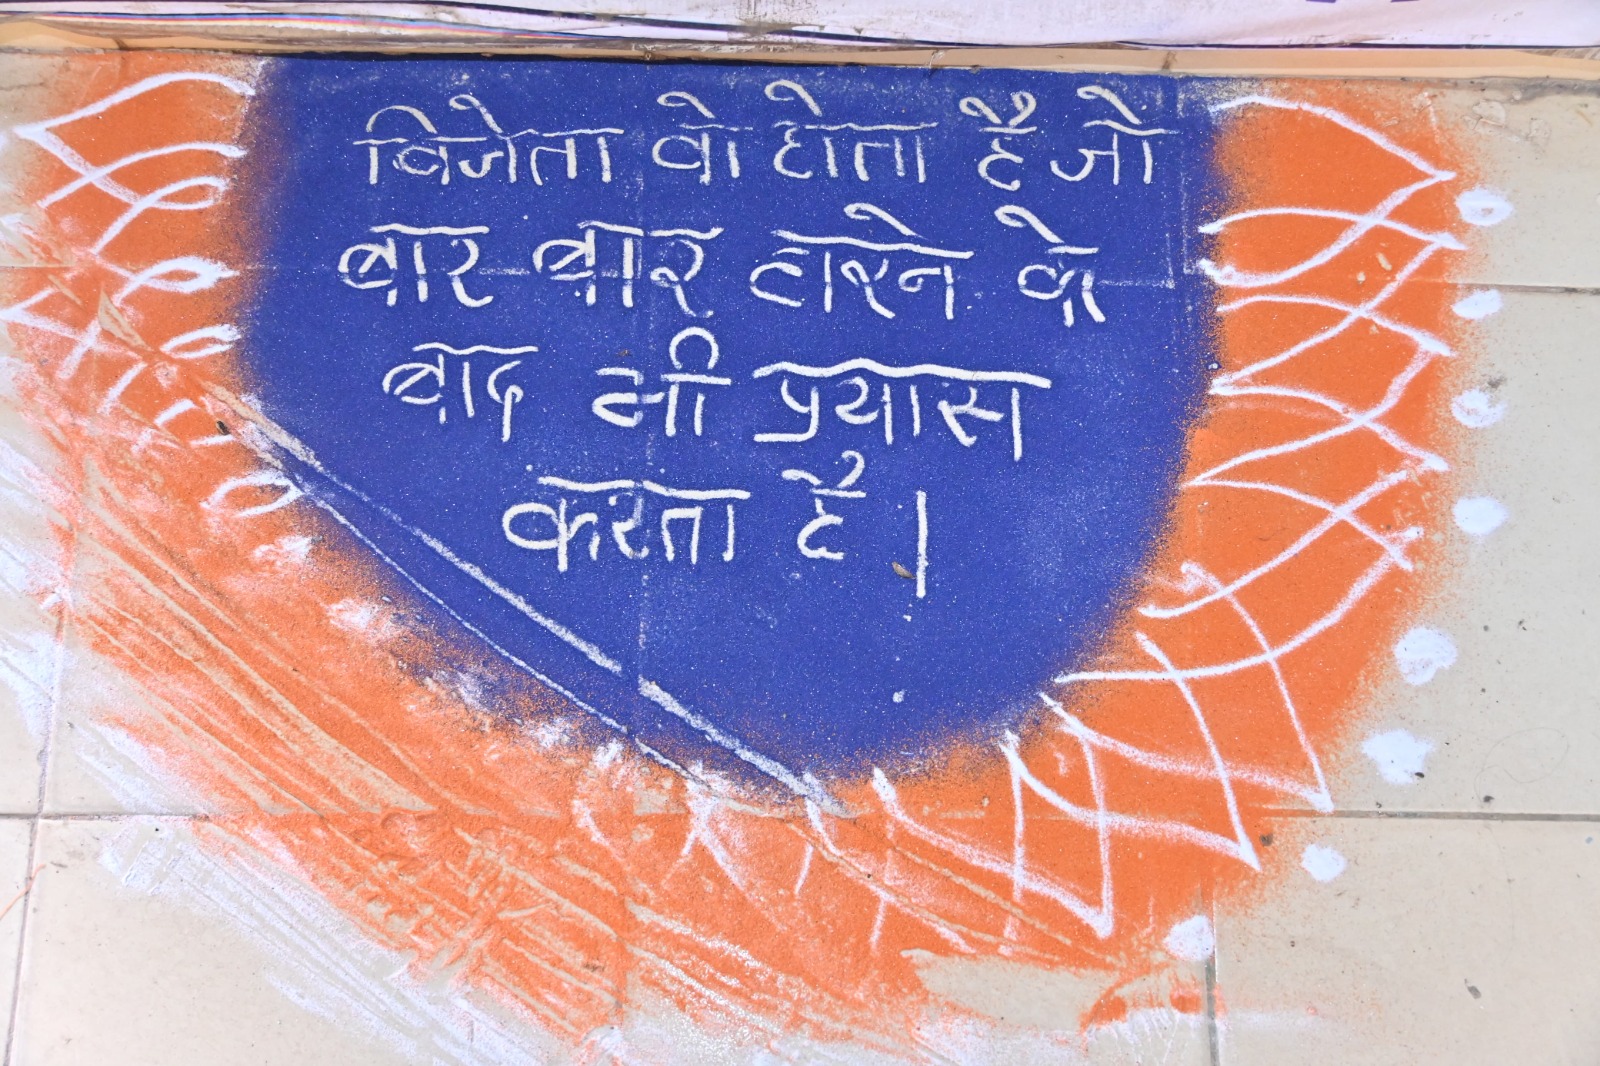 विजेता वो होता है जो
बार बार हारने के
बाद भी प्रयास
करता है।